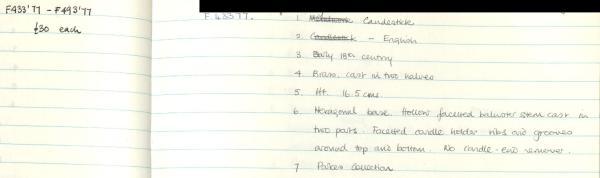 F433'77 - F493'77
£30 each
F.433'77.
1 Metalwork Candlestick
2 Candlestick - English
3 Early 18th century
4 Brass, cast in two halves
5. Ht. 16.5 cms
6. Hexagonal base. Hollow facetted baluster stem cast in
two parts. Facetted candle holder ribs and grooves
around top and bottom. No candle-end remover.
7 Parkes Collection